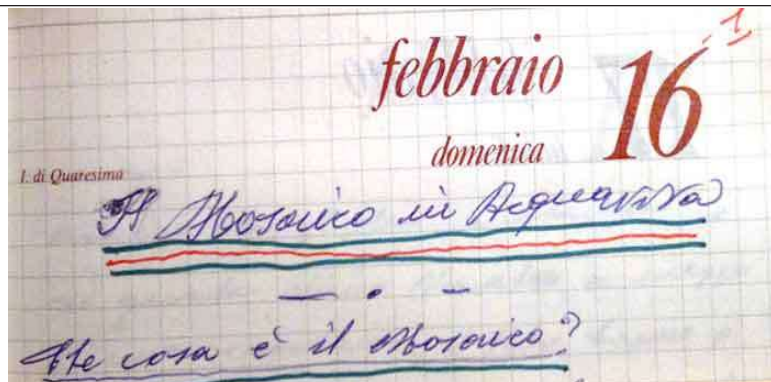 febbraio 16 1
domenica
I. di Quaresima
Il Mosaico in Acquaviva
Che cosa è il Mosaico?